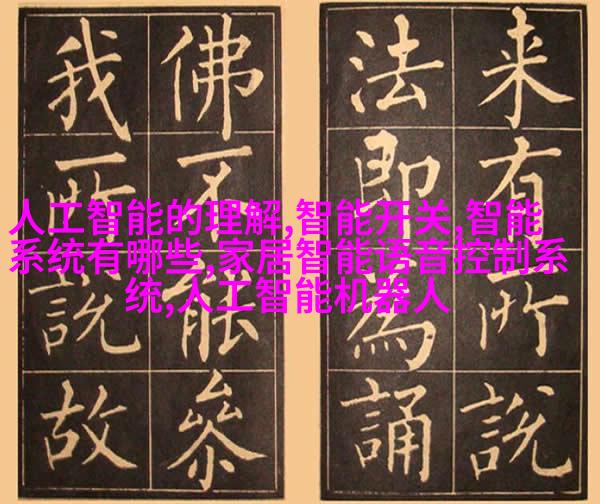 来有所說
法即為誦
佛不能參
我所說故
人工智能的理解,智能开关,智能
系统有哪些,家居智能语音控制系
统,人工智能机器人